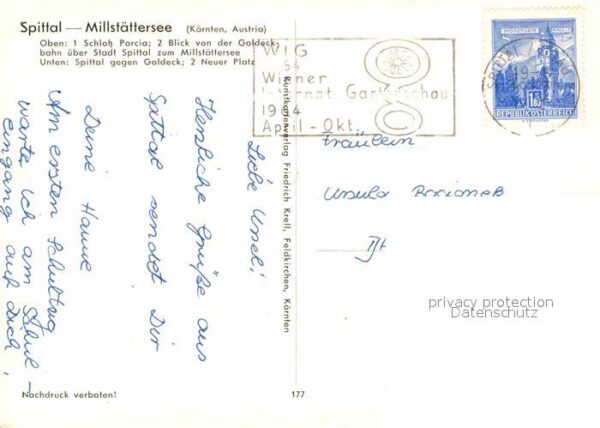 Spittal — Millstättersee (Kärnten, Austria)
Oben: 1 Schloß Porcia; 2 Blick von der Goldeck-
bahn über Stadt Spittal zum Millstättersee
Unten: Spittal gegen Goldeck; 2 Neuer Platz
WIG
64
Wiener
Internat. Gartenschau
1964
April - Okt.
REPUBLIK ÖSTERREICH
Liebe Ursel!
Herzliche Grüße aus
Spittal sendet Dir
Deine Hanne
Am ersten Schultag
warte ich am Schul-
eingang auf dich!
Kunstkartenverlag Friedrich Krell, Feldkirchen, Kärnten
Fräulein
Ursula
privacy protection
Datenschutz
Nachdruck verboten!
177